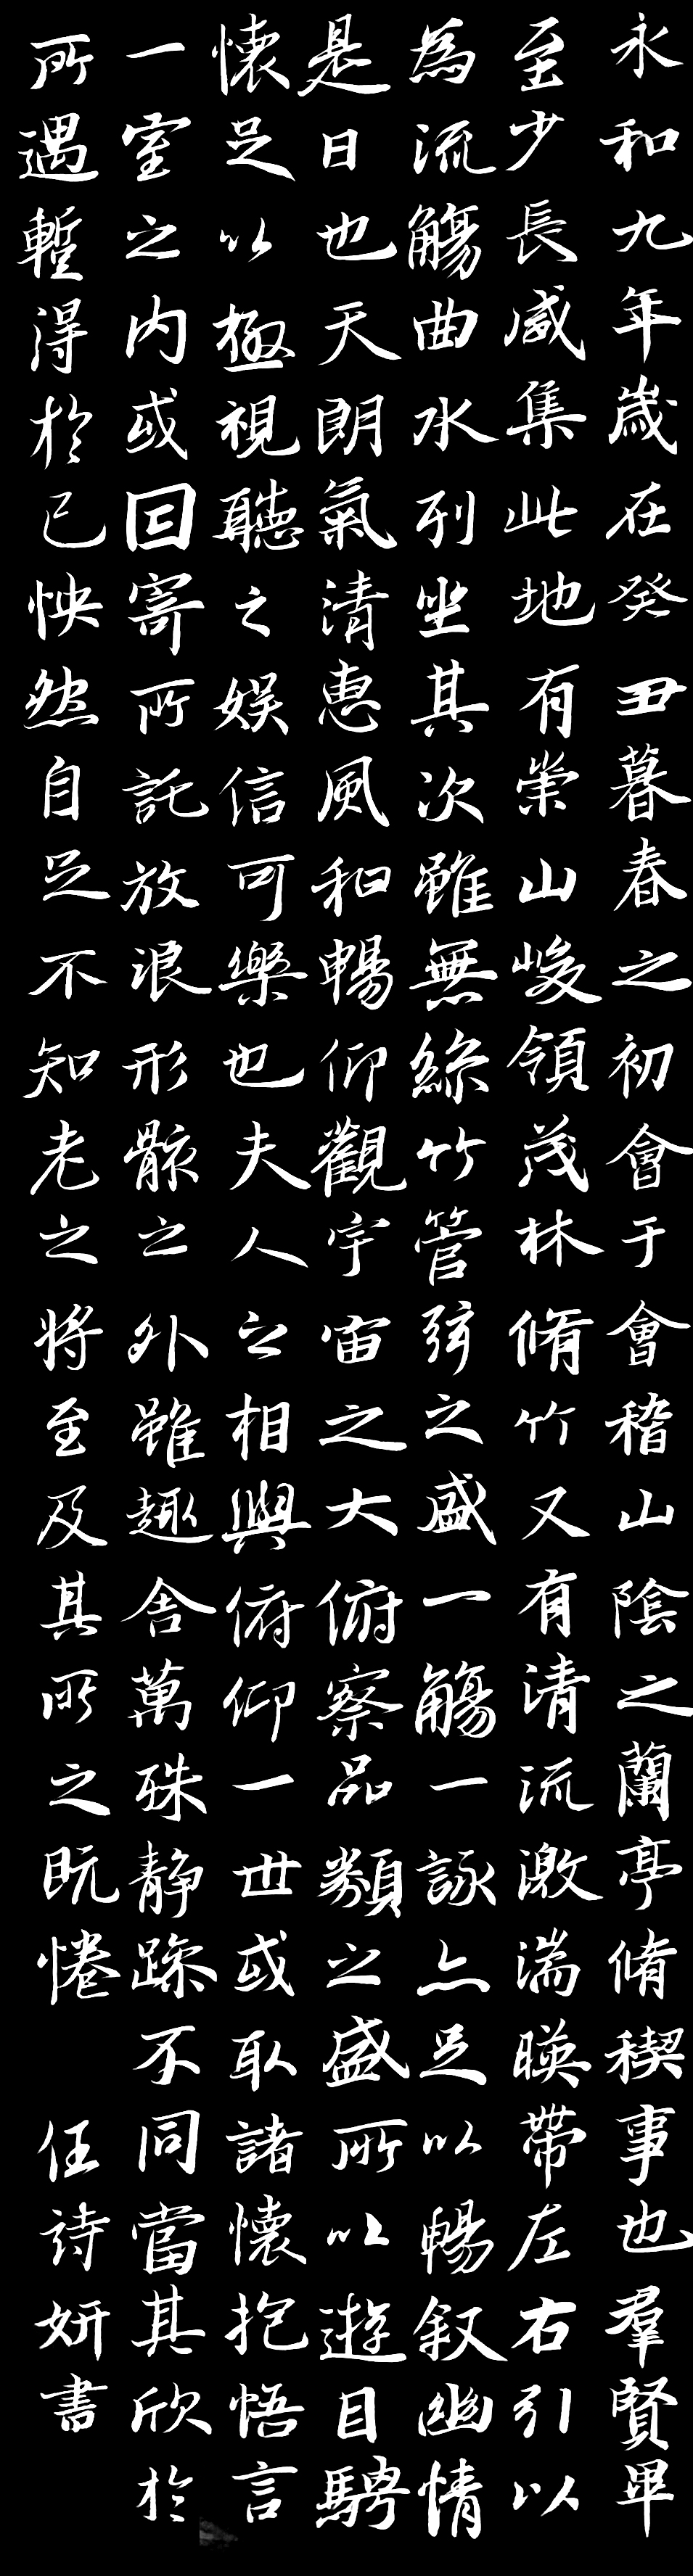 永和九年歲在癸丑暮春之初會于會稽山陰之蘭亭脩稧事也羣賢畢
至少長咸集此地有崇山峻領茂林脩竹又有清流激湍暎帶左右引以
為流觴曲水列坐其次雖無絲竹管弦之盛一觴一詠亦足以暢叙幽情
是日也天朗氣清惠風和暢仰觀宇宙之大俯察品類之盛所以遊目騁
懷足以極視聽之娛信可樂也夫人之相與俯仰一世或取諸懷抱悟言
一室之内或因寄所託放浪形骸之外雖趣舍萬殊静躁不同當其欣於
所遇蹔得於己怏然自足不知老之將至及其所之既惓 任詩妍書